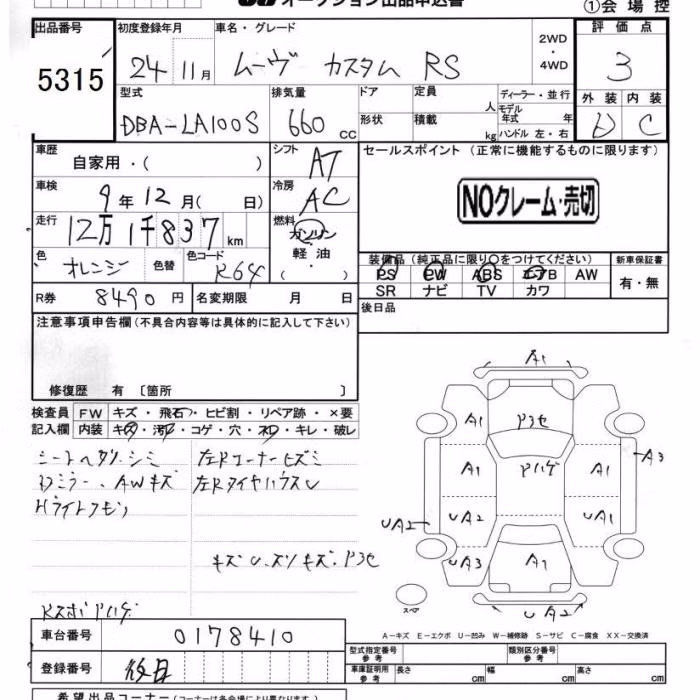 オークション出品申込書
①会場控
出品番号 5315
初度登録年月 24 11月
車名・グレード ムーヴ カスタム RS
2WD・4WD
評価点 3
外装 D 内装 C
型式 DBA-LA100S
排気量 660 cc
ドア 形状
定員 人 積載 kg
ディーラー・並行
モデル年式 年
ハンドル 左・右
車歴 自家用・( )
シフト AT
セールスポイント (正常に機能するものに限ります)
車検 9年12月( 日)
冷房 AC
NOクレーム・売切
走行 12万1千837km
燃料 ガソリン 軽油 ( )
色 オレンジ 色替 色コード R64
装備品(純正品に限り○をつけてください)
PS PW ABS エアB AW
SR ナビ TV カワ
新車保証書 有・無
R券 8490円 名変期限 月 日
後日品
注意事項申告欄(不具合内容等は具体的に記入して下さい)
修復歴 有 〔箇所 〕
検査員記入欄
FW キズ・飛石・ヒビ割・リペア跡・×要
内装 キズ・汚れ・コゲ・穴・スレ・キレ・破レ
シートヘタリ.シミ
ドアミラー.AWキズ
Hライトクモリ
左Rコーナーヒズミ
左RタイヤハウスU
キズU.スリキズ.アコセ
RスポPハゲ
A1
A1 Pコセ
A1 Pハゲ A1 A3
UA2 UA2 UA1
UA3 A1
UA2
スペア
A-キズ E-エクボ U-凹み W-補修跡 S-サビ C-腐食 XX-交換済
車台番号 0178410
型式指定番号 参考
類別区分番号 参考
登録番号 後日
車庫証明用 参考 長さ cm 幅 cm 高さ cm
希望出品コーナー(コーナーは各会場により異なります)